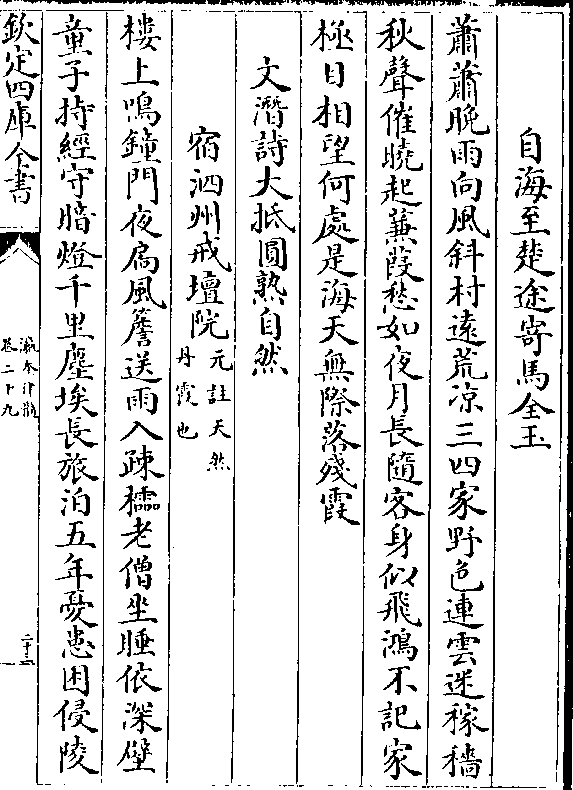 自海至楚途寄馬全玉
蕭蕭晩雨向風斜村遠荒凉三四家野色連雲迷稼穡
秋聲催曉起蒹葭愁如夜月長隨客身似飛鴻不記家
極目相望何處是海天無際落殘霞
文潛詩大抵圓熟自然
宿泗州戒壇院元註天然丹霞也
樓上鳴鐘門夜扃風簷送雨入疎櫺老僧坐睡依深壁
童子持經守暗燈千里塵埃長旅泊五年憂患困侵陵
欽定四庫全書
瀛奎律髓
卷二十九
二十三